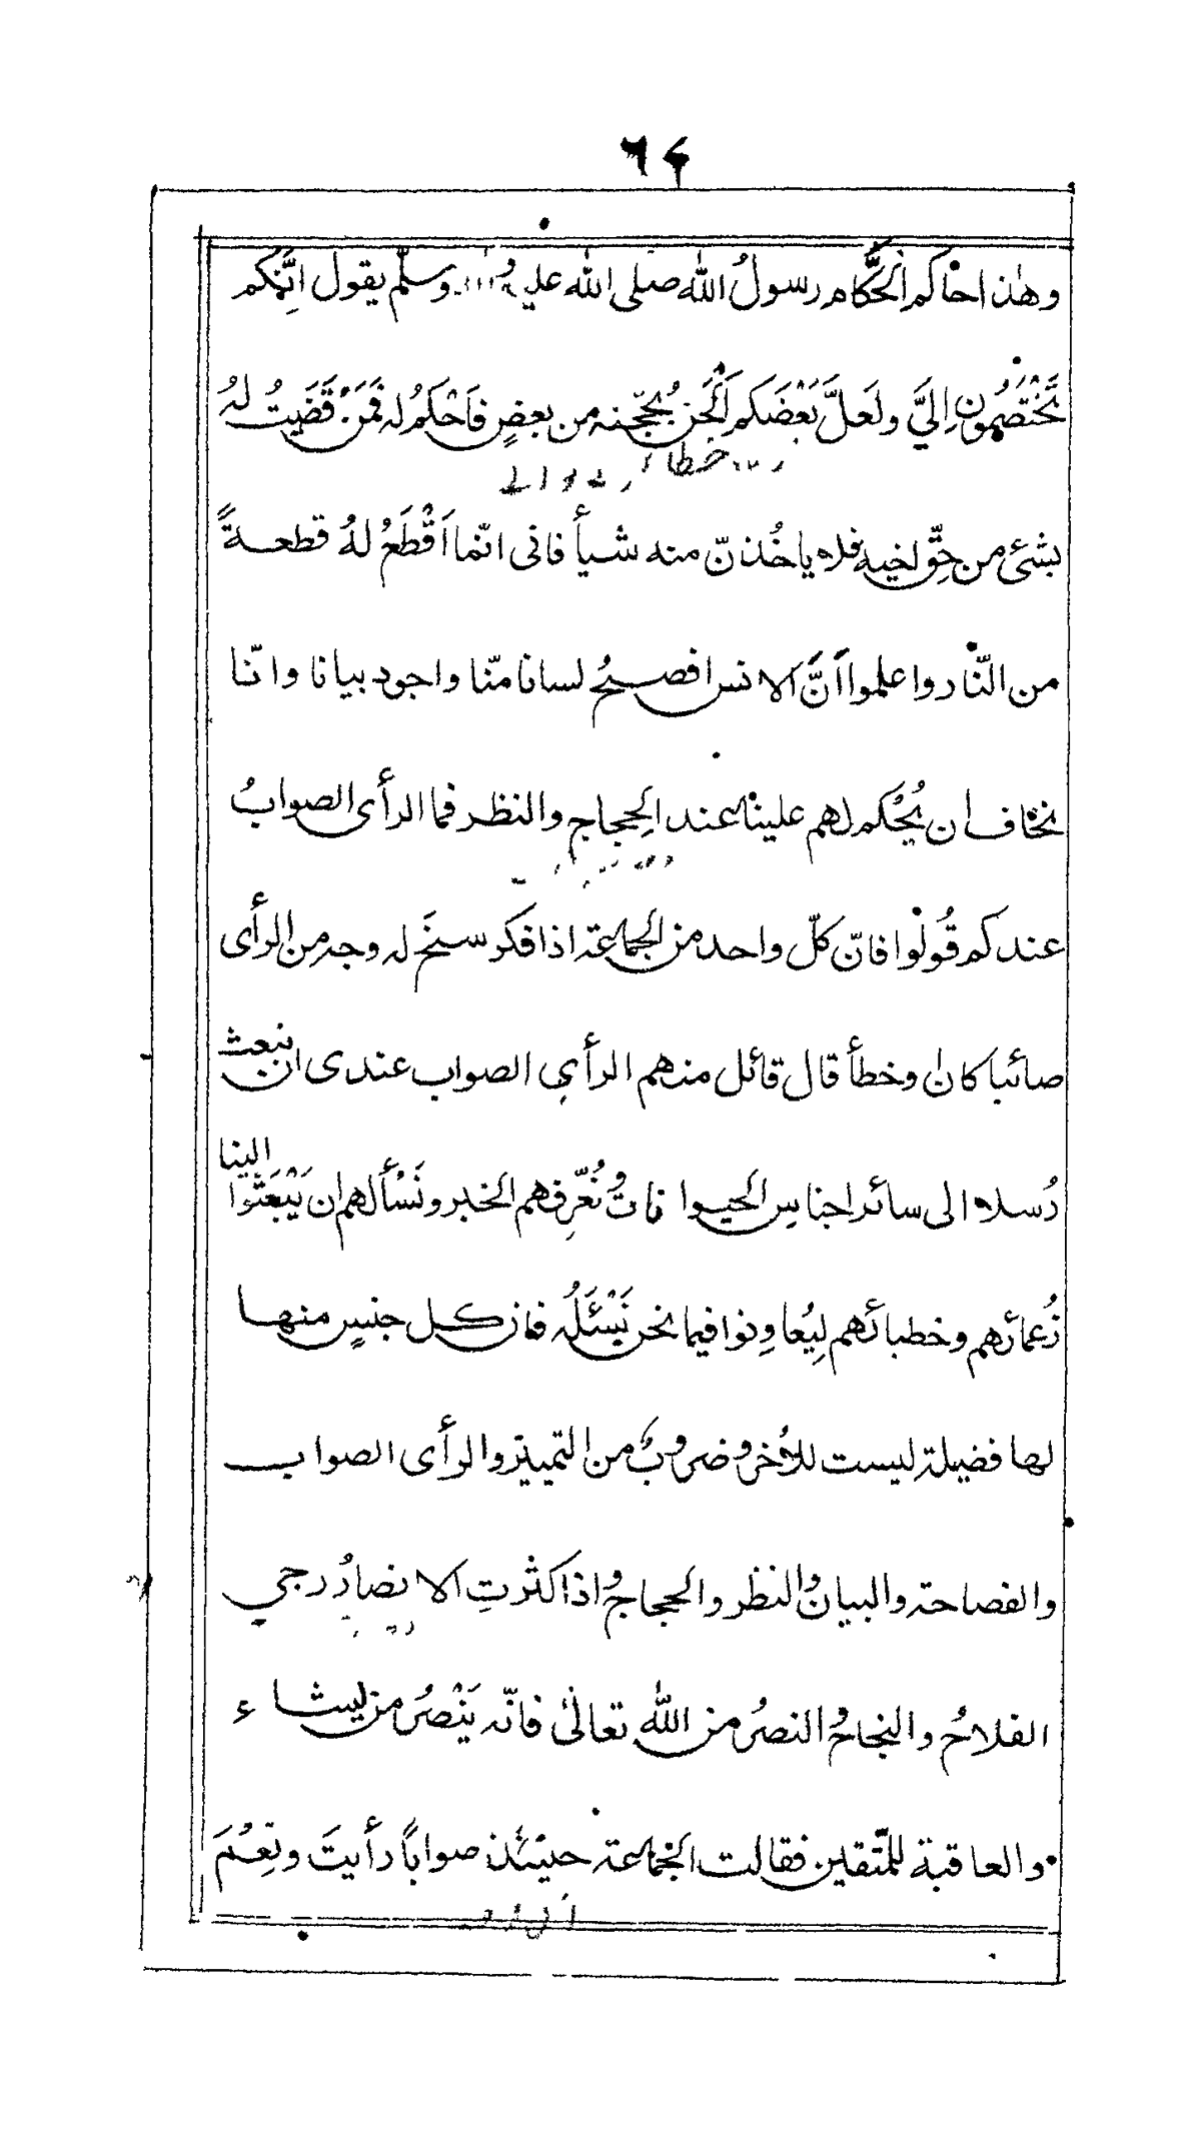 ٦٤
وهذا احاكم الحكّام رسولُ الله صلى الله عليه وسلّم يقول انّكم
تَخْتَصِمُون اِليَّ ولَعَلَّ بَعْضَكم اَلْحَن بُحجّته من بعضٍ فَاَحْكمُ له فَمَنْ قَضَيتُ لهُ
خطا
بشئ من حقّ اخيه فلا ياخُذنّ منه شيأ فانى انّما اَقْطَعُ لهُ قطعةً
من النّار واعلموا اَنَّ الانس افصحُ لسانا منّا واجود بيانا وانّا
نخاف ان يُحْكم لهم علينا عند الحِجاج والنظر فما الرأى الصوابُ
عندكم قُولُوا فانّ كلّ واحد من الجماعة اذا فكر سنحَ له وجه من الرأى
صائبا كان وخطأ قال قائل منهم الرأي الصواب عندى ان نبعث
رُسلا الى سائر اجناسِ الحيوانات ونُعّرِفهم الخبر ونَسْألهم ان يَبْعَثُوا الينا
زُعمائهم وخطبائهم لِيُعاوِنوا فيما نحن نَسْئَلُه فان كل جنسٍ منها
لها فضيلة ليست للأخر وضروبٌ من التمييز والرأى الصواب
والفصاحة والبيان والنظر والحجاج واذا كثرتِ الانصارُ رجي
الفلاحُ والنجاحُ والنصرُ من الله تعالىٰ فانّه يَنْصُرُ من يشاء
والعاقبة للمّتقين فقالت الجماعة حينئذ صواباً رأيتَ ونِعْمَ